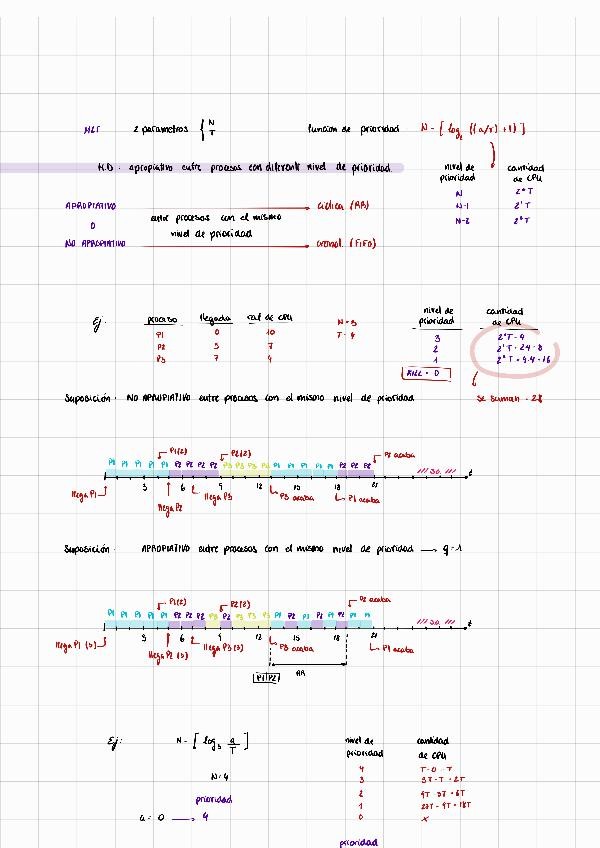 MLF 2 parametros { N T función de prioridad N - [ log₂ ((a/T) + 1) ]
H.D: apropiativo entre procesos con diferente nivel de prioridad
nivel de prioridad cantidad de CPU
N 2⁰T
N-1 2¹T
N-2 2²T
APROPIATIVO → cíclica (RR)
O entre procesos con el mismo nivel de prioridad
NO APROPIATIVO → normal (FIFO)
Ej: proceso llegada cat de CPU N=3 nivel de prioridad cantidad de CPU
P1 0 10 T=4 3 2⁰T = 4
P2 5 7 2 2¹T = 2·4 = 8
P3 7 4 1 2²T = 4·4 = 16
KILL = 0
se suman = 28
Suposición: NO APROPIATIVO entre procesos con el mismo nivel de prioridad
P1(2) P2(2) P2 acaba
P1 P1 P1 P1 P1 P2 P2 P2 P2 P3 P3 P3 P3 P1 P1 P1 P1 P1 P2 P2 P2 /// S.O. ///
3 6 9 12 15 18 21 t
llega P1 llega P2 llega P3 P3 acaba P1 acaba
Suposición: APROPIATIVO entre procesos con el mismo nivel de prioridad → q=1
P1(2) P2(2) P2 acaba
P1 P1 P1 P1 P1 P2 P2 P2 P3 P2 P3 P3 P3 P1 P2 P1 P2 P1 P2 P1 P1 /// S.O. ///
3 6 9 12 15 18 21 t
llega P1 (3) llega P2 (3) llega P3 (3) P3 acaba P1 acaba
P1 P2 RR
Ej: N - [ log₃ a/T ] nivel de prioridad cantidad de CPU
4 T - 0 = T
N=4 3 3T - T = 2T
prioridad 2 9T - 3T = 6T
a = 0 → 4 1 27T - 9T = 18T
0 x
prioridad